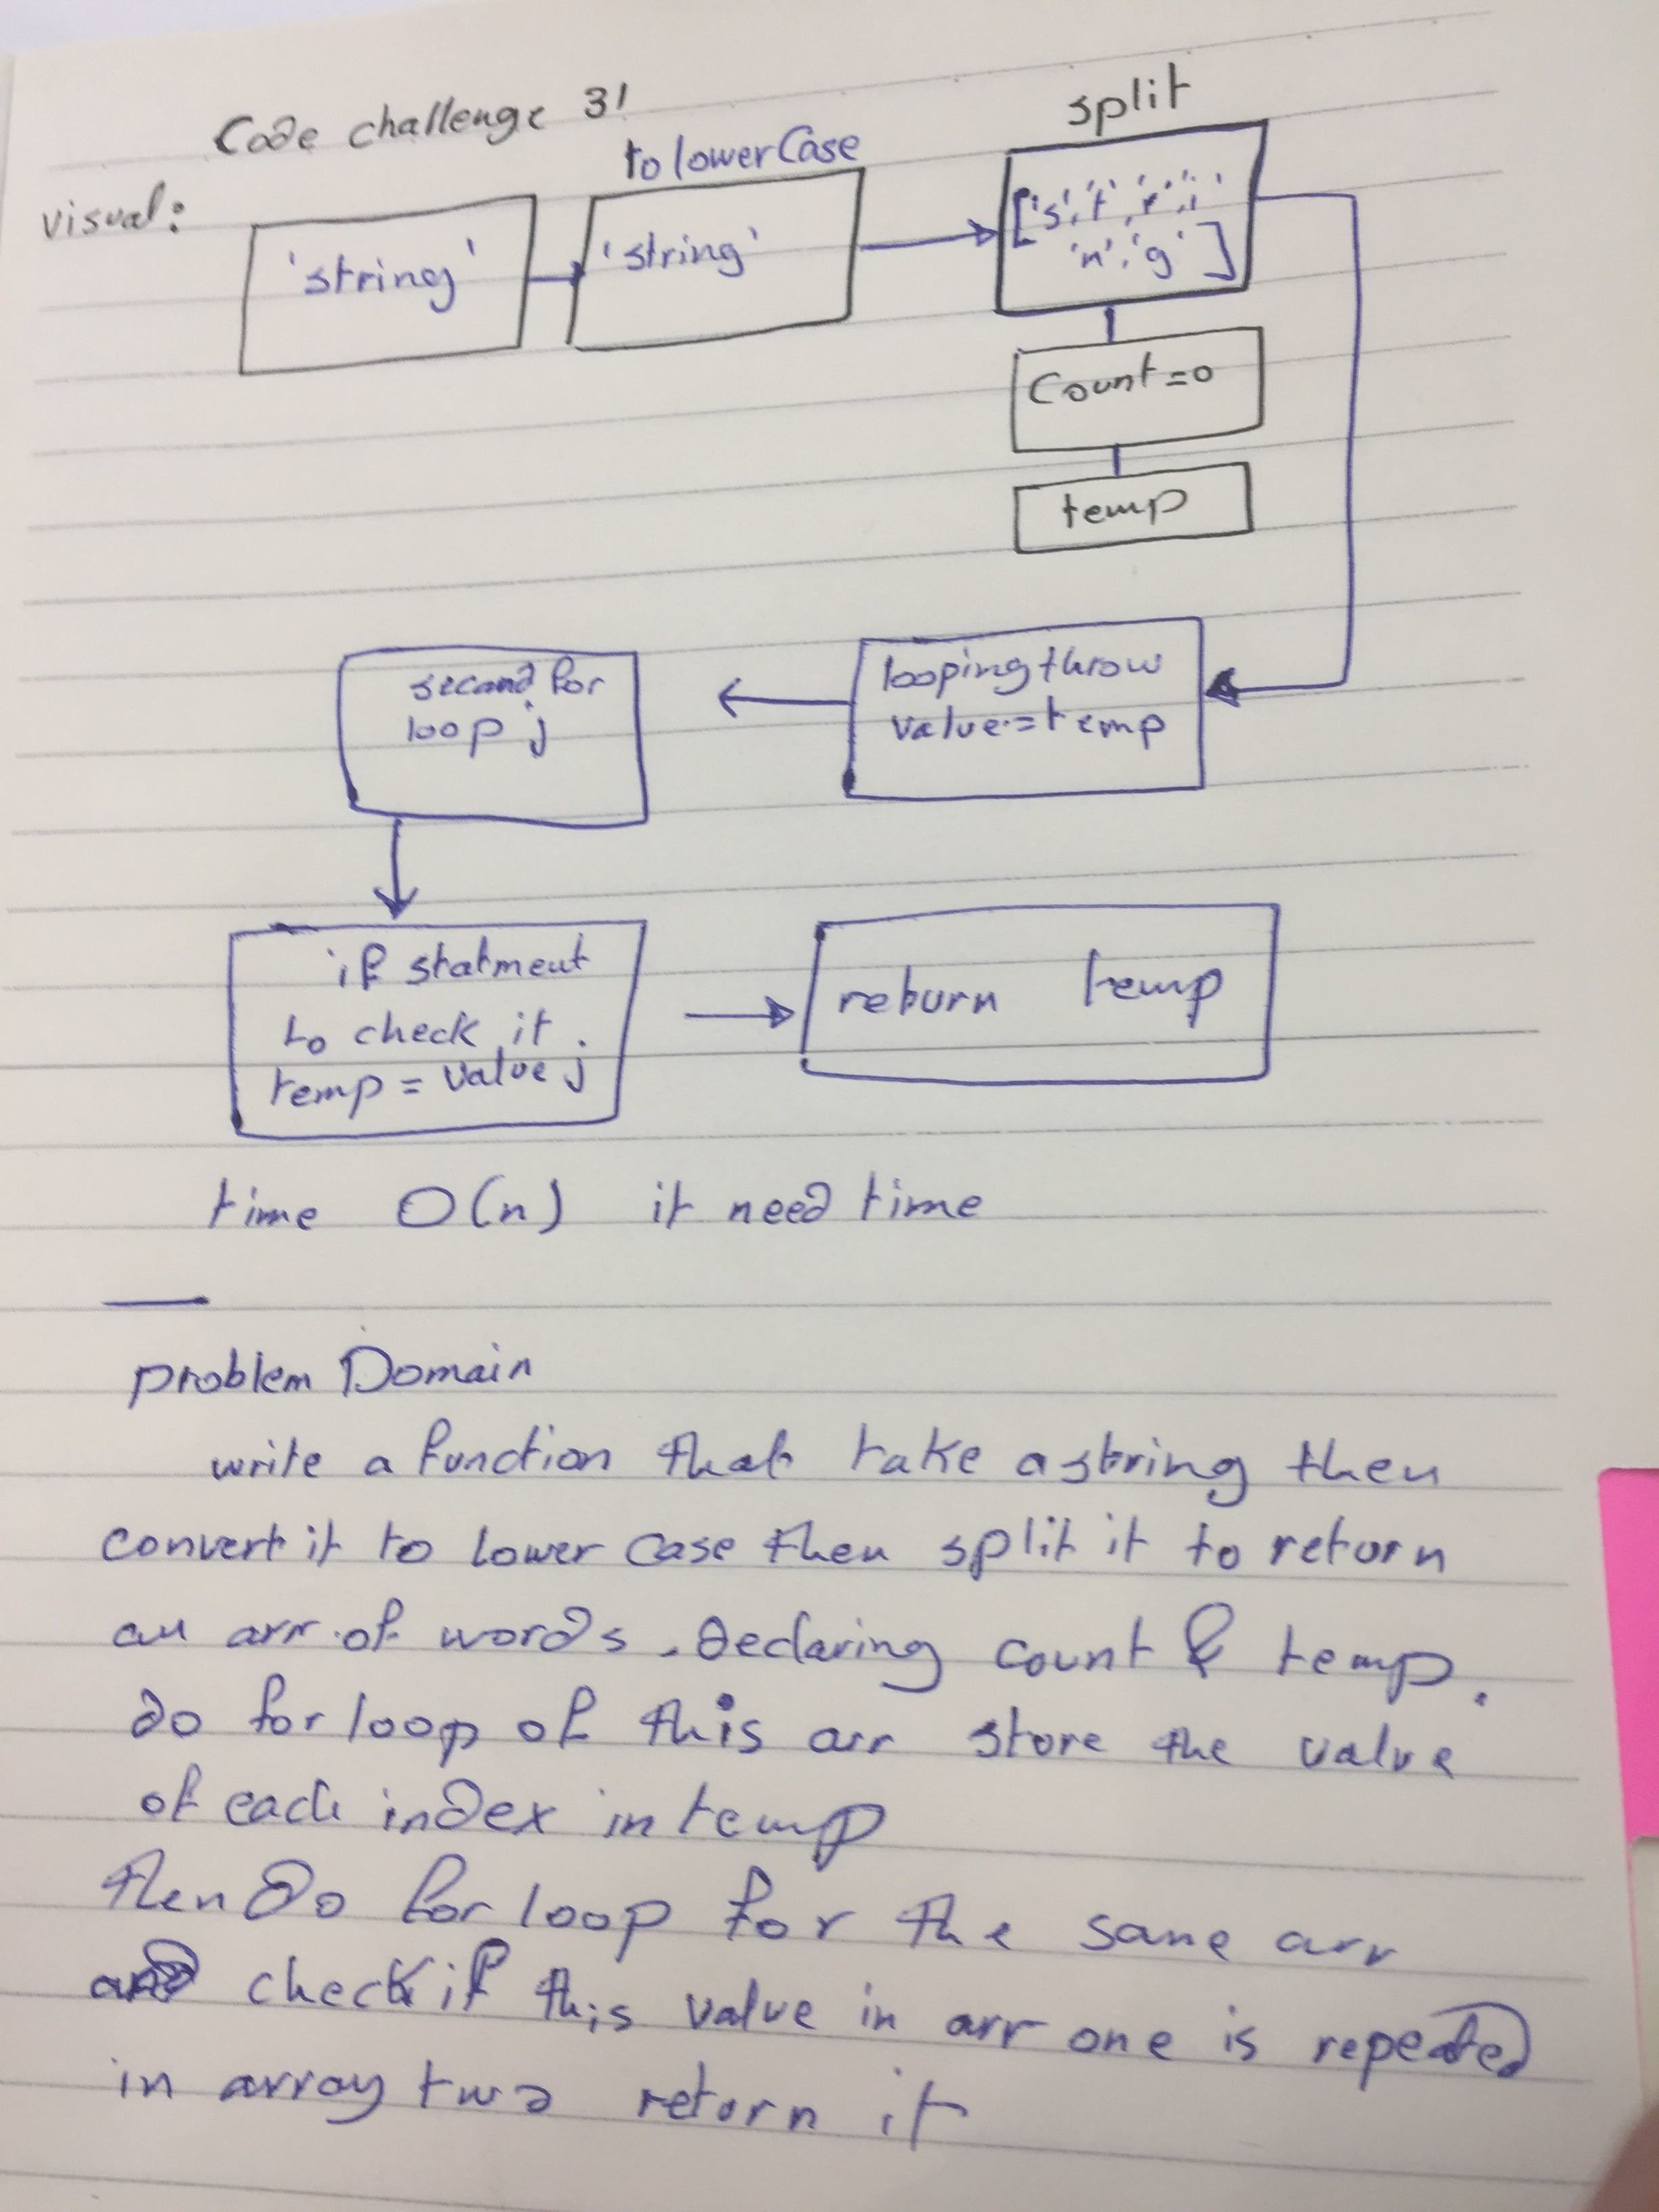 Code challenge 3!
visual:
'string'
to lowerCase
'string'
split
['s','t','r','i'
'n','g']
Count=0
temp
looping throw
value=temp
second for
loop j
if statment
to check it
temp = value j
return temp
time O(n) it need time
problem Domain
write a function that take a string then
convert it to lower case then split it to return
an arr of words. Declaring count & temp.
do for loop of this arr store the value
of each index in temp
then do for loop for the same arr
and check if this value in arr one is repeated
in array two return it